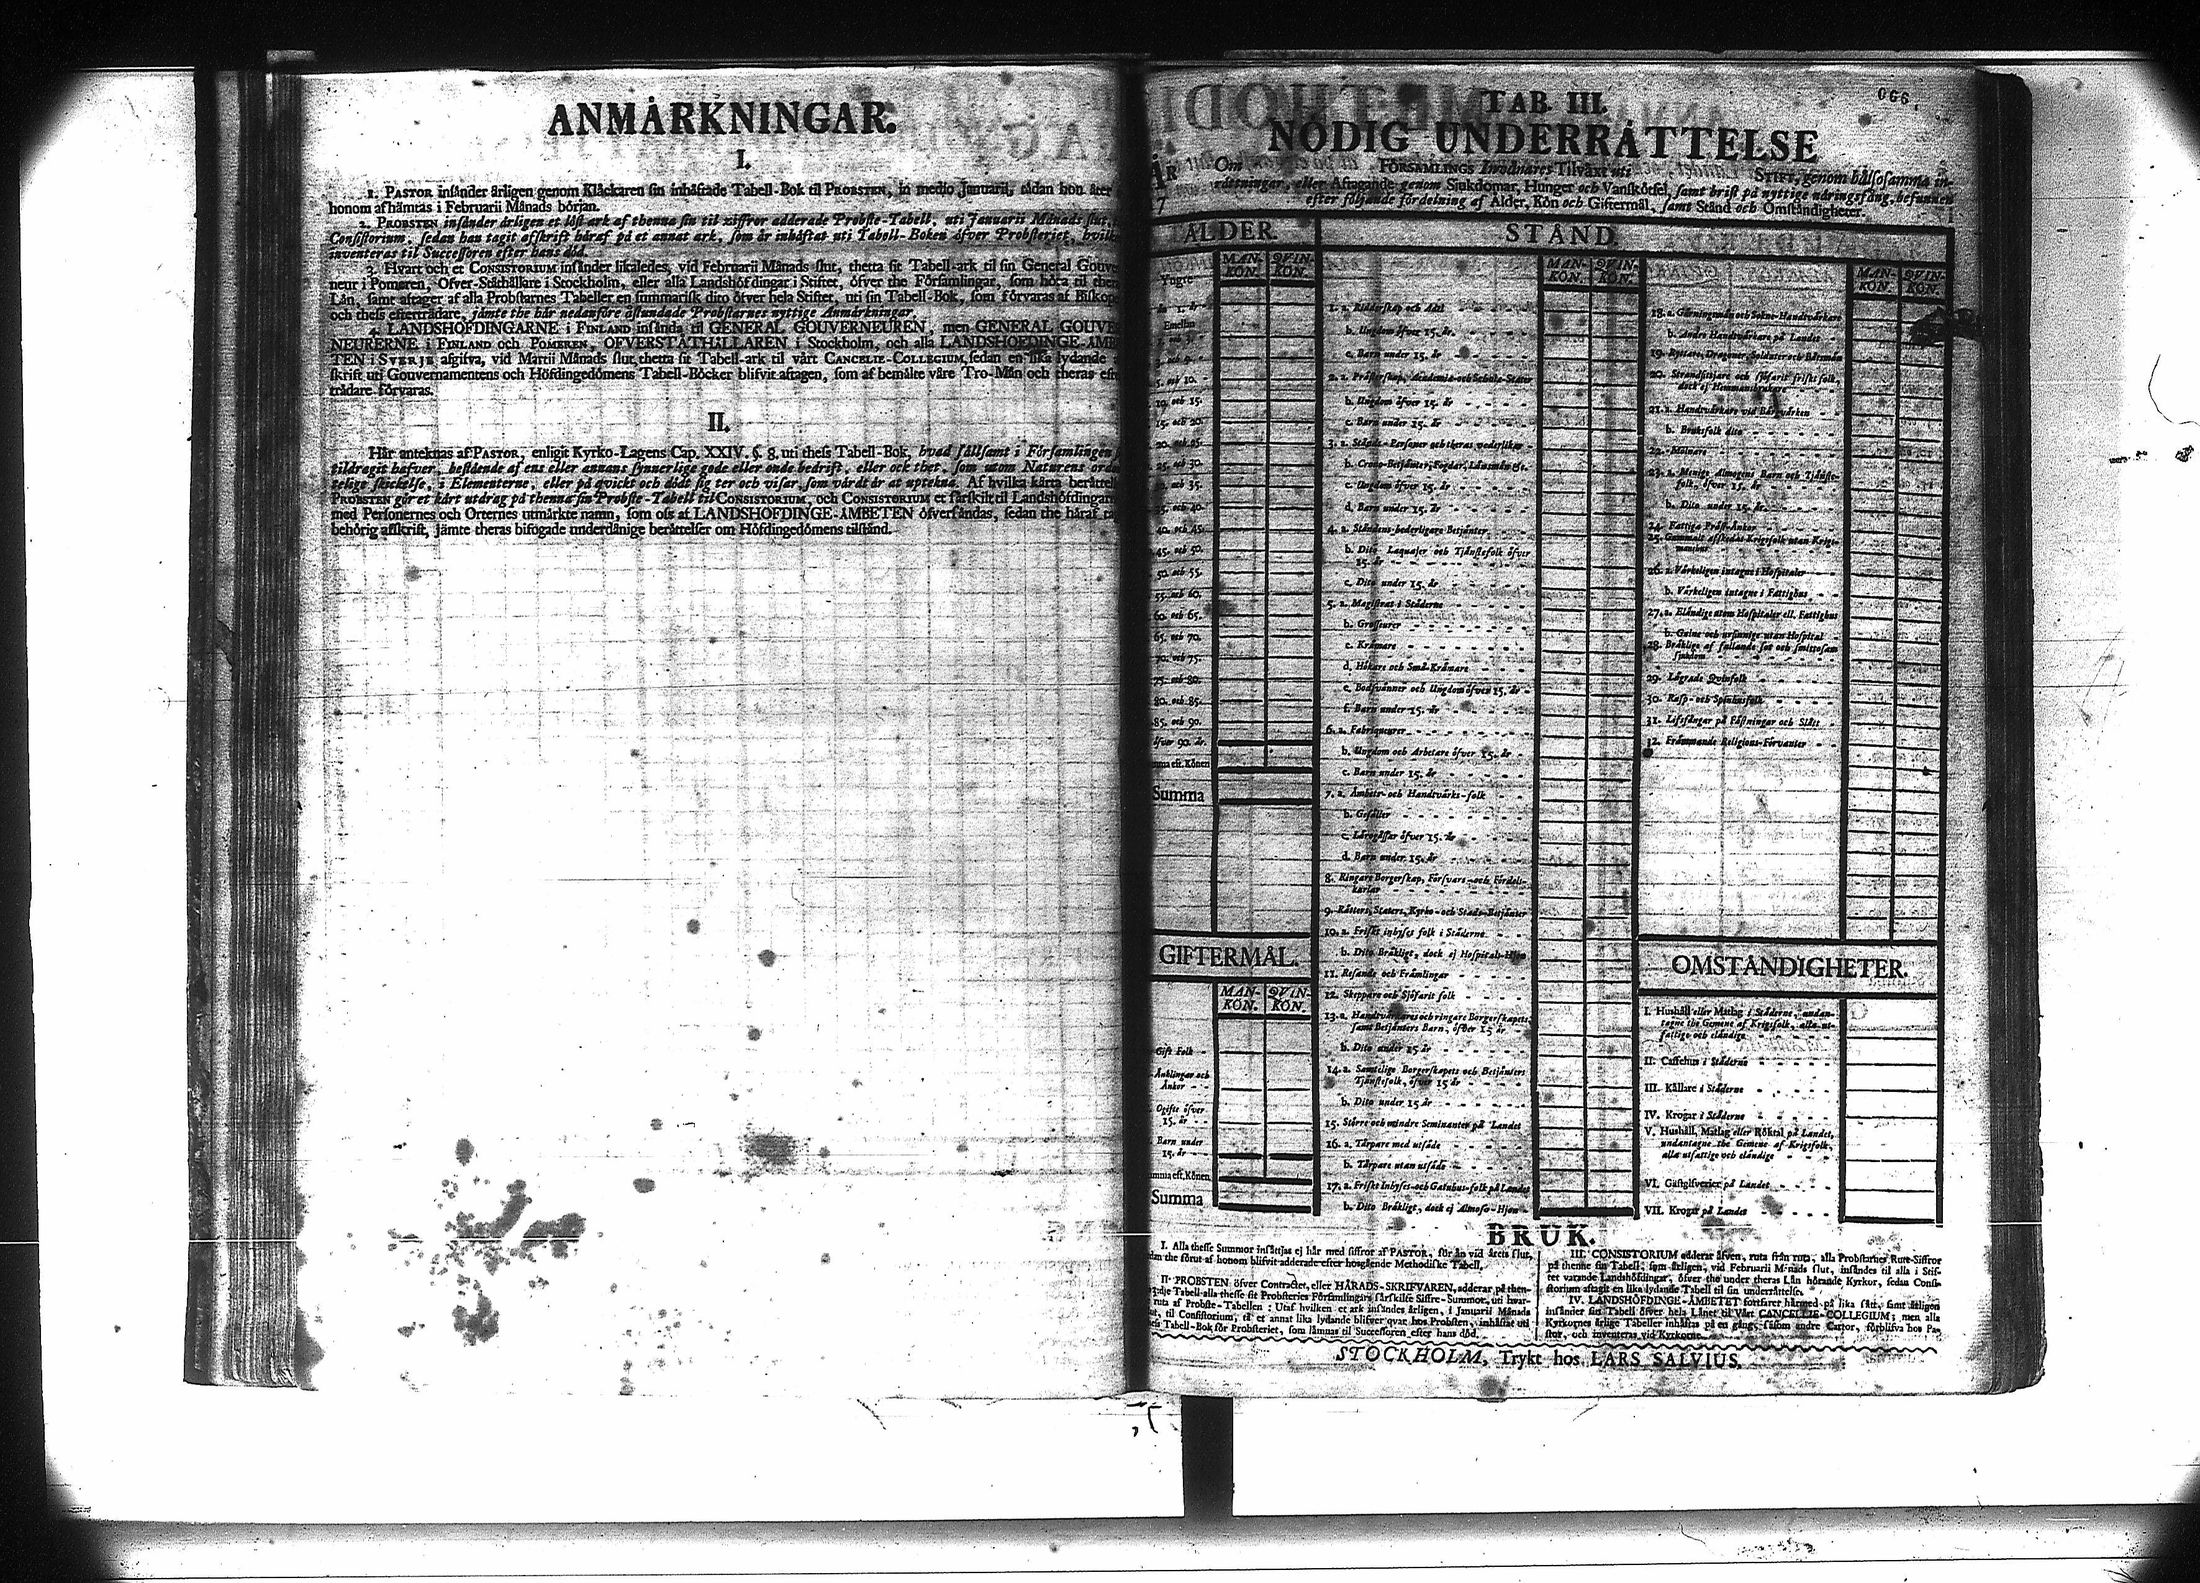 ANMÅRKNINGAR.
I.
1. PASTOR insånder årligen genom Klåckaren sin inhåftade Tabell-Bok til PROBSTEN, in medio Januarii, sådan hon åter
honom afhämtas i Februarii Månads början.
2. PROBSTEN insånder årligen et löst ark af thenna sin til ziffror adderade Probste-Tabell, uti Januarii Månads slut,
Consistorium, sedan han tagit afskrift håraf på et annat ark, som år inhåftat uti Tabell-Boken öfver Probsteriet, hvilken
inventeras til Successoren efter hans död.
3. Hvart och et CONSISTORIUM insånder likaledes, vid Februarii Månads slut, thetta sit Tabell-ark til sin General Gouver
neur i Pomeren, Öfver-Ståthållare i Stockholm, eller alla Landshöfdingar i Stiftet, öfver the Församlingar, som höra til
Lån, samt aftager af alla Probstarnes Tabeller en summarisk dito öfver hela Stiftet, uti sin Tabell-Bok, som förvaras af Biskopen
och thess eftertrådare, jämte the hår nedanföre åstundade Probstarnes nyttige Anmårkningar.
4. LANDSHÖFDINGARNE i FINLAND insånda til GENERAL GOUVERNEUREN, men GENERAL GOUVER
NEURERNE i FINLAND och POMEREN, ÖFVERSTÅTHÅLLAREN i Stockholm, och alla LANDSHÖFDINGE-ÅMBE
TEN i SVERJE afgifva, vid Martii Månads slut, thetta sit Tabell-ark til vårt CANCELIE-COLLEGIUM, sedan en lika lydande
skrift uti Gouvernamentens och Höfdingedömens Tabell-Böcker blifvit aftagen, som af bemålte våre Tro-Mån och theras efter
trådare förvaras.
II.
Hår anteknas af PASTOR, enligit Kyrko-Lagens Cap. XXIV. §. 8. uti thess Tabell-Bok, hvad sållsamt i Församlingen
tildragit hafver, bestående af ens eller annans synnerlige gode eller onde bedrift, eller ock thet, som utom Naturens orde
telige skickelse, i Elementerne, eller på qvickt och dödt sig ter och visar, som vårdt år at uptekna. Af hvilka kårta beråttel
PROBSTEN gör et kårt utdrag på thenna sin Probste-Tabell til CONSISTORIUM, och CONSISTORIUM et sårskilt til Landshöfdingarne
med Personernes och Orternes utmårkte namn, som oss af LANDSHÖFDINGE-ÅMBETEN öfversåndas, sedan the håraf
behörig afskrift, jämte theras bifogade underdånige beråttelser om Höfdingedömens tilstånd.
066.
TAB. III.
NÖDIG UNDERRÅTTELSE
ÅR Om FÖRSAMLINGS Invånares Tilväxt uti STIFT, genom hålsosamma in-
råttningar, eller Aftagande genom Sjukdomar, Hunger och Vanskötsel, samt brist på nyttige näringsfång, befunnen
17 efter följande fördelning af Ålder, Kön och Giftermål, samt Stånd och Omståndigheter.
ÅLDER.
MAN-KÖN. QVIN-KÖN.
Yngre
ån 1. år
Emellan
1. och 3.
3. och 5.
5. och 10.
10. och 15.
15. och 20.
20. och 25.
25. och 30.
30. och 35.
35. och 40.
40. och 45.
45. och 50.
50. och 55.
55. och 60.
60. och 65.
65. och 70.
70. och 75.
75. och 80.
80. och 85.
85. och 90.
öfver 90. år.
mma eft. Könen
Summa
GIFTERMÅL.
MAN-KÖN. QVIN-KÖN.
Gift Folk
Änklingar och
Änkor
Ogifte öfver
15. år
Barn under
15. år
mma eft. Könen
Summa
STÅND.
MAN-KÖN. QVIN-KÖN.
1. a. Ridderskap och Adel
b. Ungdom öfver 15. år
c. Barn under 15. år
2. a. Pråsterskap, Academie- och Schole-Stater
b. Ungdom öfver 15. år
c. Barn under 15. år
3. a. Stånds-Personer och theras vederlikar
b. Crono-Betjänter, Fogdar, Länsmän &c.
c. Ungdom öfver 15. år
d. Barn under 15. år
4. a. Ståndens hederligare Betjänter
b. Dito Laquajer och Tjånstefolk öfver
15. år
c. Dito under 15. år
5. a. Magistrat i Ståderne
b. Grosseurer
c. Kråmare
d. Hökare och Små-Kråmare
e. Bodsvånner och Ungdom öfver 15. år
f. Barn under 15. år
6. a. Fabriqueurer
b. Ungdom och Arbetare öfver 15. år
c. Barn under 15. år
7. a. Åmbets- och Handtvårks-folk
b. Gesåller
c. Lårogåssar öfver 15. år
d. Barn under 15. år
8. Ringare Borgerskap, Försvars- och Fördels-
karlar
9. Råttens, Staters, Kyrko- och Stads-Betjånter
10. a. Friskt inhyses folk i Ståderne
b. Dito Bråkligt, dock ej Hospitals-Hjon
11. Resande och Fråmlingar
12. Skeppare och Sjöfarit folk
13. a. Handtvårkares och ringare Borgerskapets,
samt Betjånters Barn, öfver 15 år
b. Dito under 15 år
14. a. Samtelige Borgerskapets och Betjånters
Tjånstefolk, öfver 15 år
b. Dito under 15 år
15. Större och mindre Seminanter på Landet
16. a. Torpare med utsåde
b. Torpare utan utsåde
17. a. Friskt Inhyses- och Gatuhus-folk på Landet
b. Dito Bråkligt, dock ej Almoso-Hjon
MAN-KÖN. QVIN-KÖN.
18. a. Gårningsmån och Sokne-Handtvårkare
b. Andre Handtvårkare på Landet
19. Ryttare, Dragoner, Soldater och Båtsmän
20. Strandsittjare och sjöfarit friskt folk,
dock ej Hemmansbrukare
21. a. Handtvårkare vid Bårgvårken
b. Bruksfolk dito
22. Mölnare
23. a. Menige Almogens Barn och Tjånste-
folk, öfver 15. år
b. Dito under 15. år
24. Fattiga Pråst-Änkor
25. Gammalt afskedat Krigsfolk utan Krigs-
manshus
26. a. Vårkeligen intagne i Hospitaler
b. Vårkeligen intagne i Fattighus
27. a. Elåndige utom Hospitaler ell. Fattighus
b. Galne och ursinnige utan Hospital
28. Bråklige af fallande sot och smittosam
sjukdom
29. Lågrade Qvinfolk
30. Rasp- och Spinhusfolk
31. Lifsfångar på Fåstningar och Slått
32. Fråmmande Religions-Förvanter
OMSTÅNDIGHETER.
I. Hushåll eller Matlag i Ståderne, undan-
tagne the Gemene af Krigsfolk, alla ut-
fattige och elåndige
II. Caffehus i Ståderne
III. Kållare i Ståderne
IV. Krogar i Ståderne
V. Hushåll, Matlag eller Röktal på Landet,
undantagne the Gemene af Krigsfolk,
alla utfattige och elåndige
VI. Gåstgifverier på Landet
VII. Krogar på Landet
BRUK.
I. Alla thesse Summor insåttjas ej hår med siffror af PASTOR, för ån vid årets slut,
dan the förut af honom blifvit adderade efter hosgående Methodiske Tabell.
II. PROBSTEN öfver Contractet, eller HÅRADS-SKRIFVAREN, adderar på then-
dje Tabell alla thesse sit Probsteries Församlingars sårskilte Siffre-Summor, uti hvar-
ruta af Probste-Tabellen: Utaf hvilken et ark insåndes årligen, i Januarii Månads
ut, til Consistorium, tå et annat lika lydande blifver qvar hos Probsten, inhåftat uti
ess Tabell-Bok för Probsteriet, som låmnas til Successoren efter hans död.
III. CONSISTORIUM adderar åfven, ruta från ruta, alla Probstarnes Rute-Siffror
på thenne sin Tabell; som årligen, vid Februarii Månads slut, insåndes til alla i Stif-
tet varande Landshöfdingar, öfver the under theras Lån hörande Kyrkor, sedan Consi-
storium aftagit en lika lydande Tabell til sin underråttelse.
IV. LANDSHÖFDINGE-ÅMBETET fortfarer hårmed på lika sått, samt årligen
insånder sin Tabell öfver hela Lånet til Vårt CANCELLIE-COLLEGIUM; men alla
Kyrkornes årlige Tabeller inhåftas på en gång, såsom andre Cartor, förblifva hos Pa-
stor, och inventeras vid Kyrkorne.
STOCKHOLM, Trykt hos LARS SALVIUS.